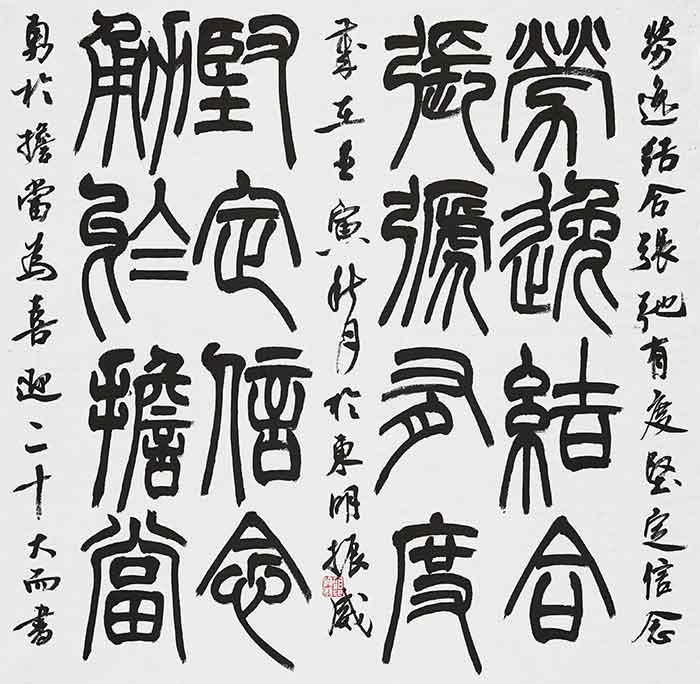 勞逸結合張弛有度堅定信念
勞逸結合
張弛有度
歲在壬寅秋月於東明振威
堅定信念
勇於擔當
勇於擔當為喜迎二十大而書